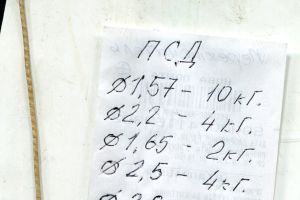 ПСД
⌀1,57 - 10 кг.
⌀2,2 - 4 кг.
⌀1,65 - 2 кг.
⌀2,5 - 4 кг.